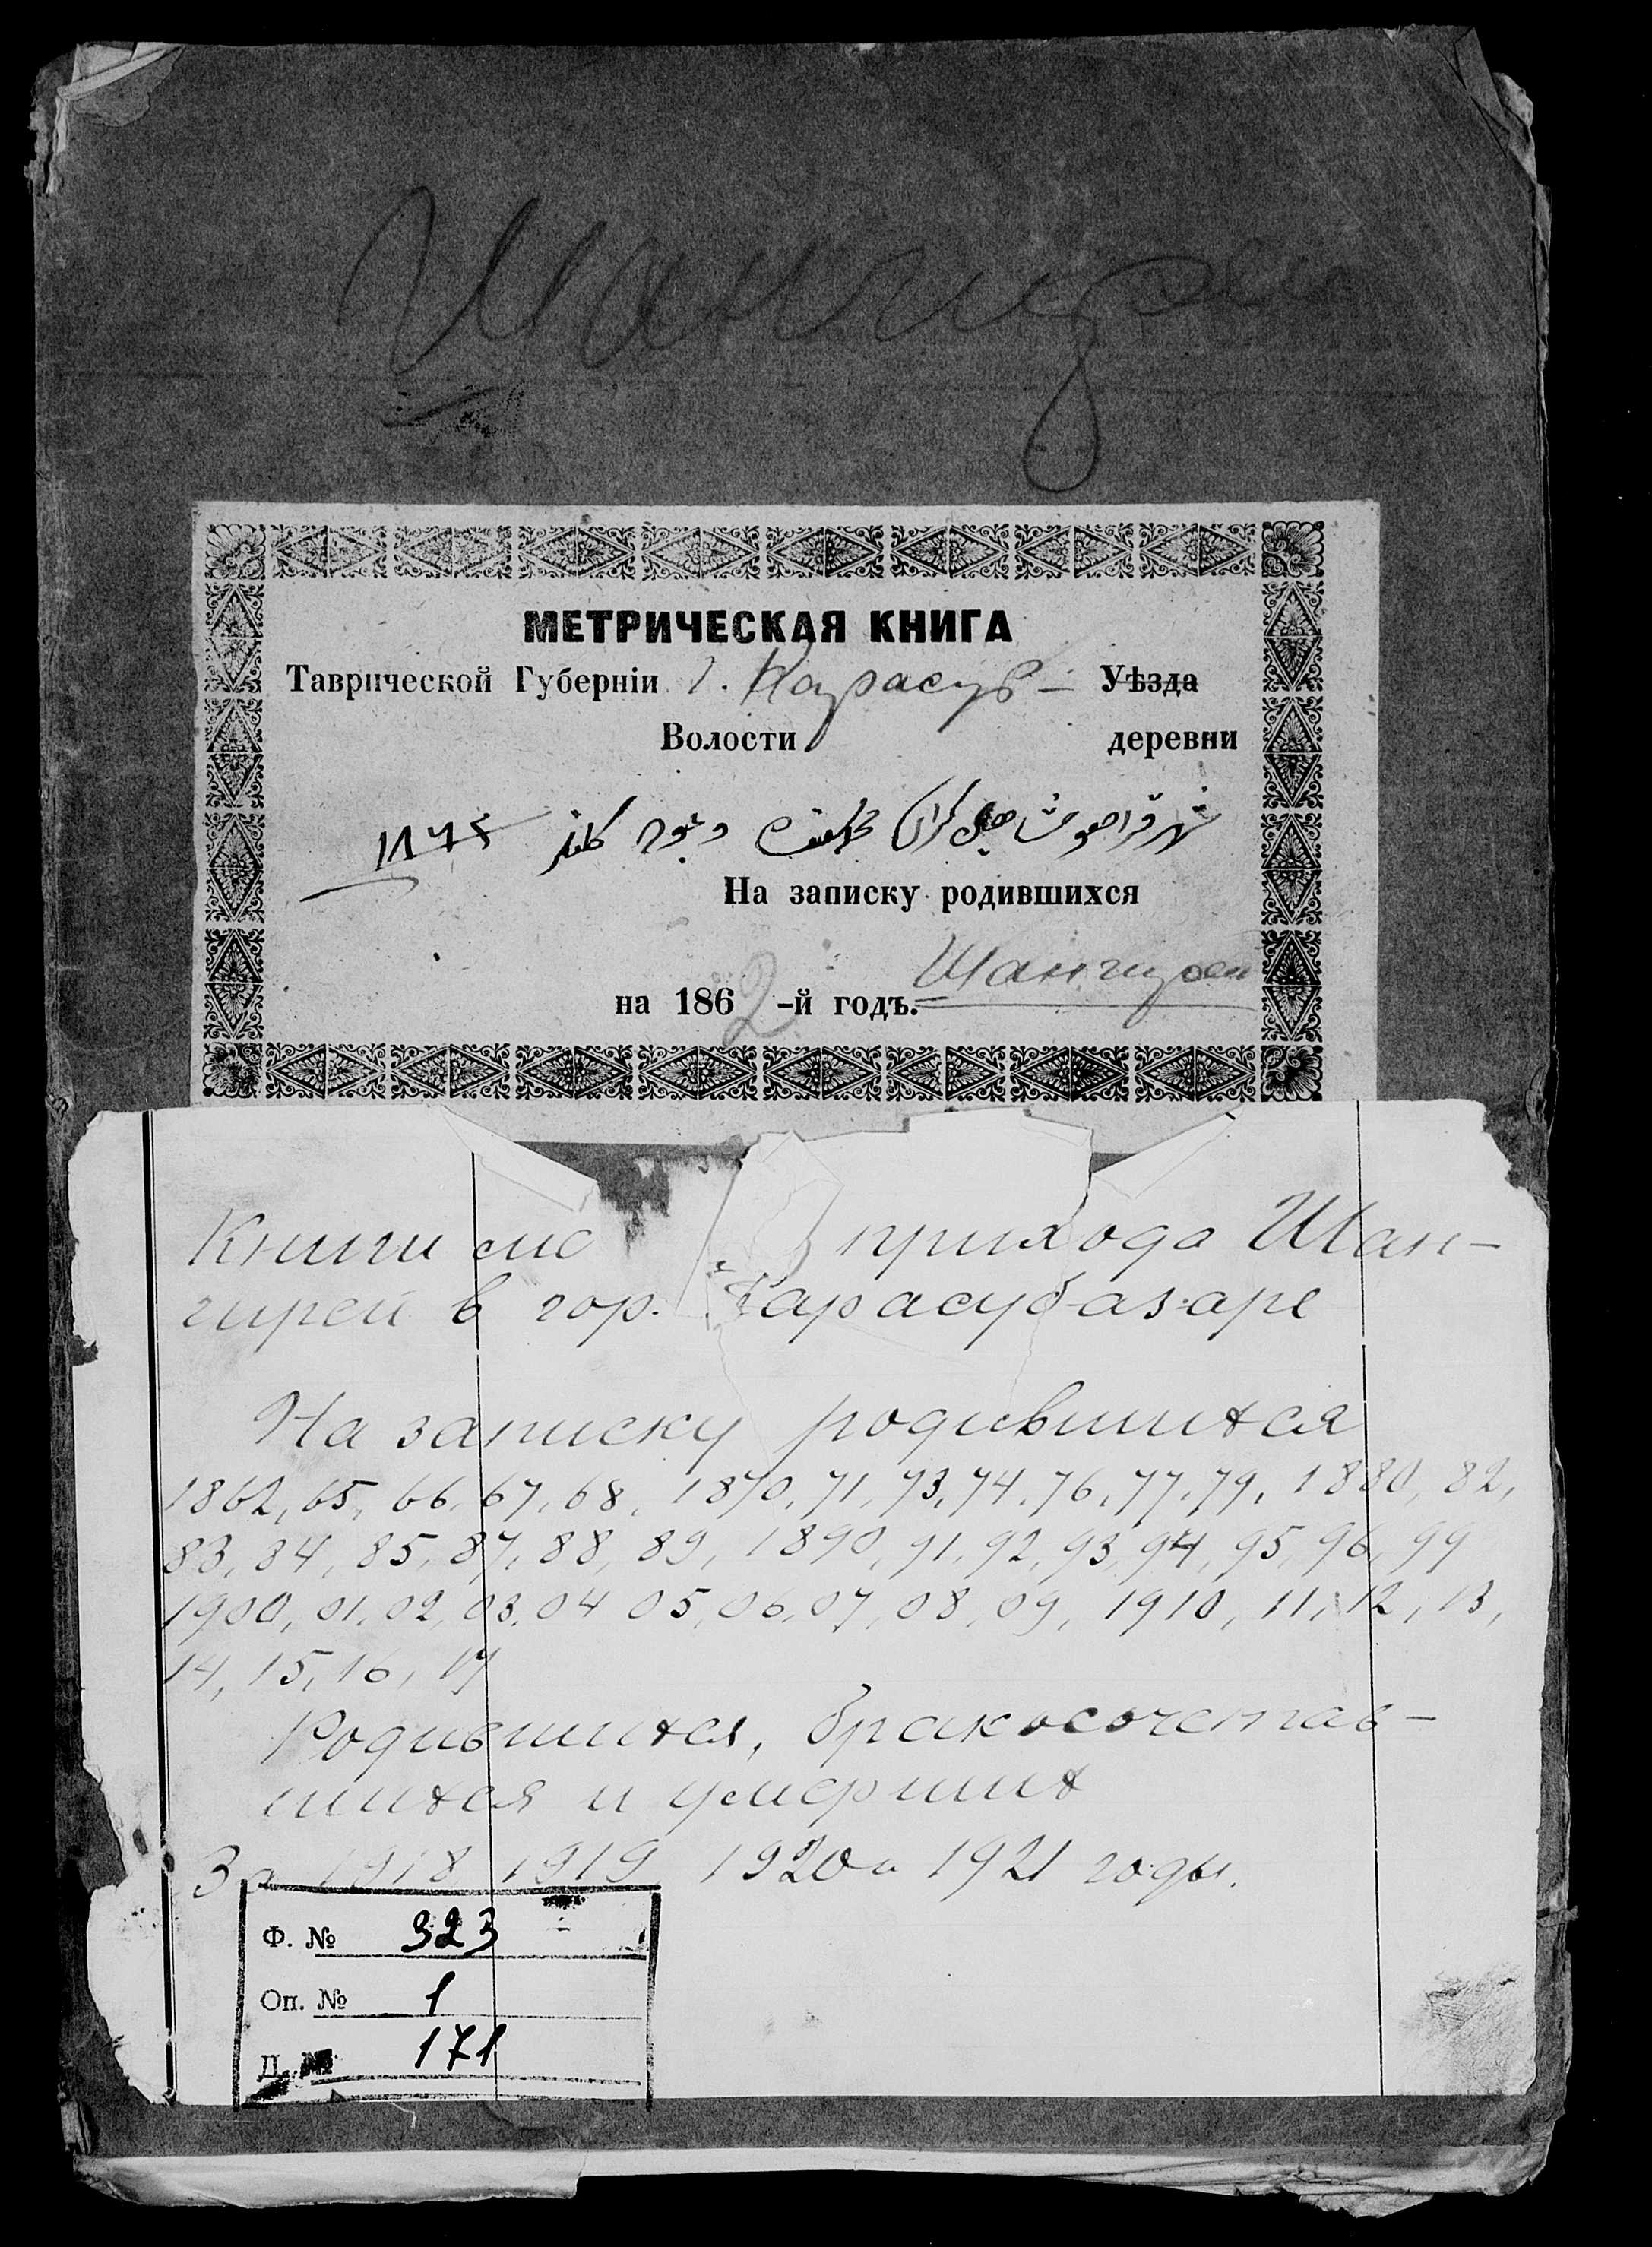 Шангирей
МЕТРИЧЕСКАЯ КНИГА
Таврической Губерніи г. Карасуб- Уѣзда
Волости деревни
На записку родившихся
Шангирей
на 1862-й годъ.
Книги прихода Шан-
гирей в гор. Карасубазаре
На записку родившихся
1862, 65, 66, 67, 68, 1870, 71, 73, 74, 76, 77, 79, 1880, 82,
83, 84, 85, 87, 88, 89, 1890, 91, 92, 93, 94, 95, 96, 99
1900, 01, 02, 03, 04 05, 06, 07, 08, 09, 1910, 11, 12, 13,
14, 15, 16, 17
Родившихся, бракосочетав-
шихся и умерших
За 1918 1919 1920 и 1921 годы.
Ф. № 323
Оп. № 1
Д. № 171